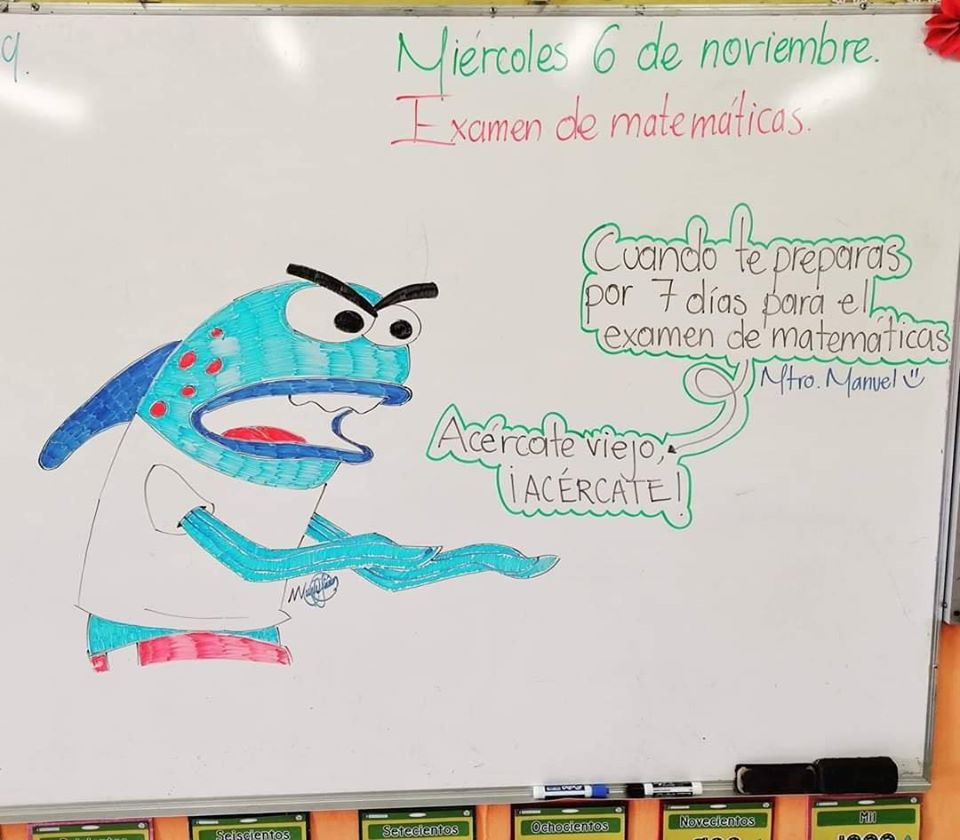 9.
Miércoles 6 de noviembre.
Examen de matemáticas.
Cuando te preparas
por 7 días para el
examen de matemáticas
Mtro. Manuel
Acércate viejo,
¡ACÉRCATE!
Seiscientos
Setecientos
Ochocientos
Novecientos
Mil